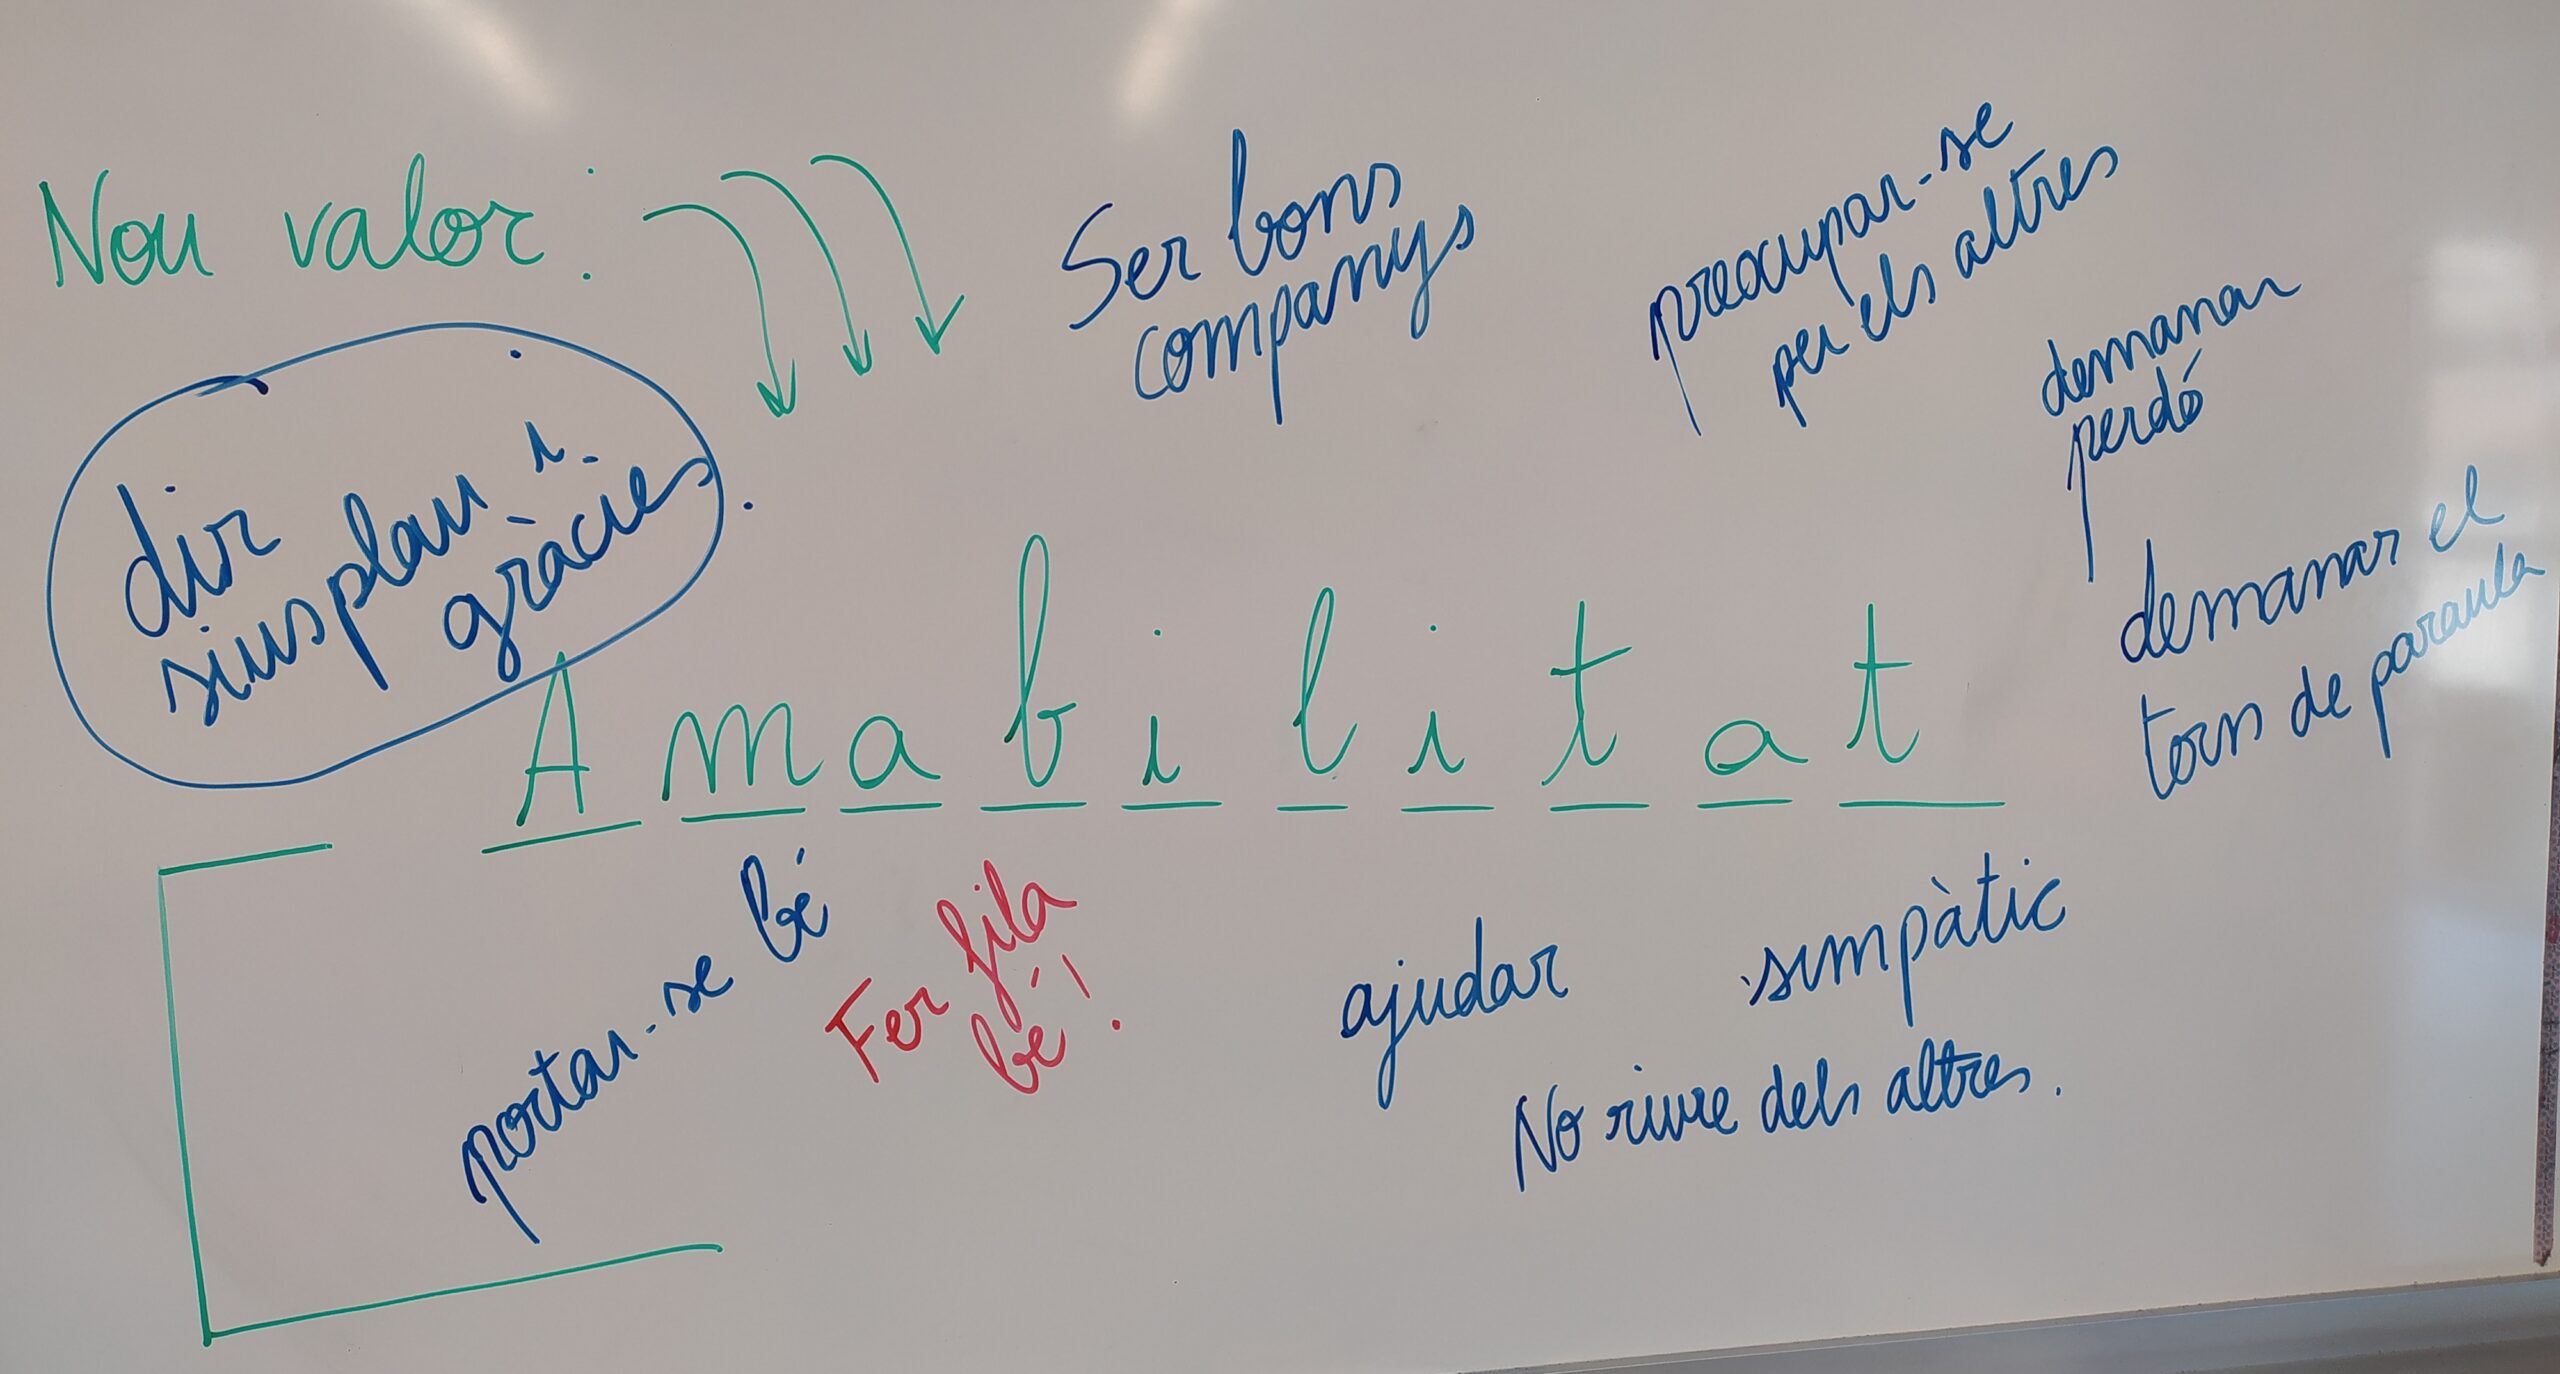 Nou valor:
Ser bons
companys
preocupar-se
per els altres
demanar
perdó
dir
siusplau i
gràcies
demanar el
torn de paraula
Amabilitat
portar-se bé
Fer fila
bé!
ajudar
simpàtic
No riure dels altres.